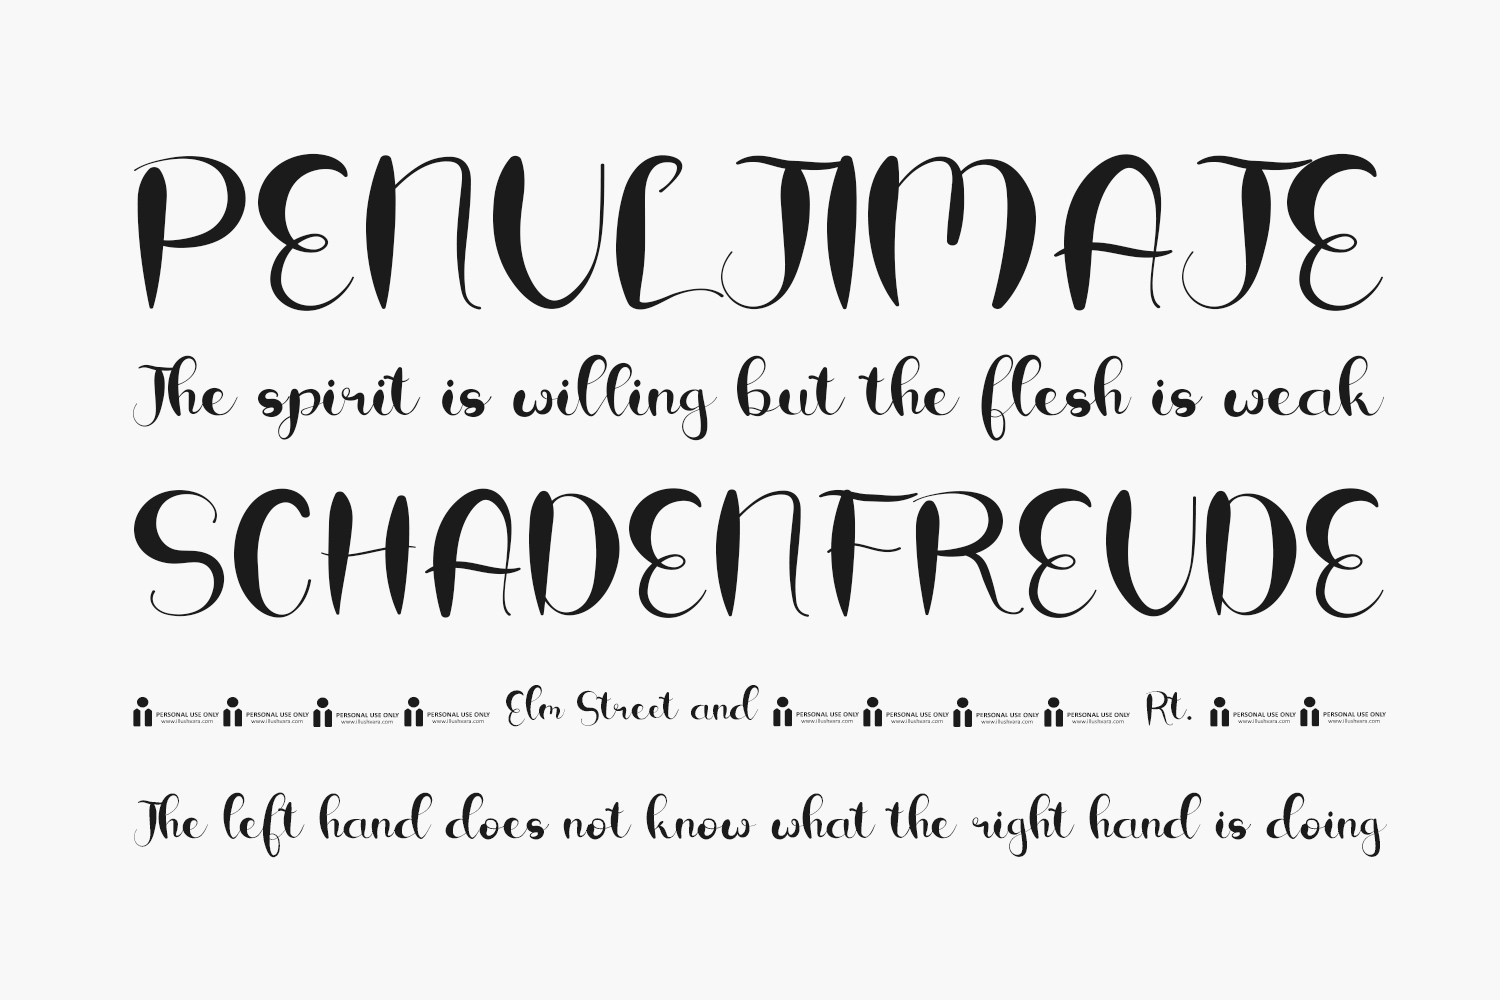 PENULTIMATE
The spirit is willing but the flesh is weak
SCHADENFREUDE
PERSONAL USE ONLY www.illushvara.com PERSONAL USE ONLY www.illushvara.com PERSONAL USE ONLY www.illushvara.com PERSONAL USE ONLY www.illushvara.com Elm Street and PERSONAL USE ONLY www.illushvara.com PERSONAL USE ONLY www.illushvara.com PERSONAL USE ONLY www.illushvara.com PERSONAL USE ONLY www.illushvara.com Rt. PERSONAL USE ONLY www.illushvara.com PERSONAL USE ONLY www.illushvara.com
The left hand does not know what the right hand is doing